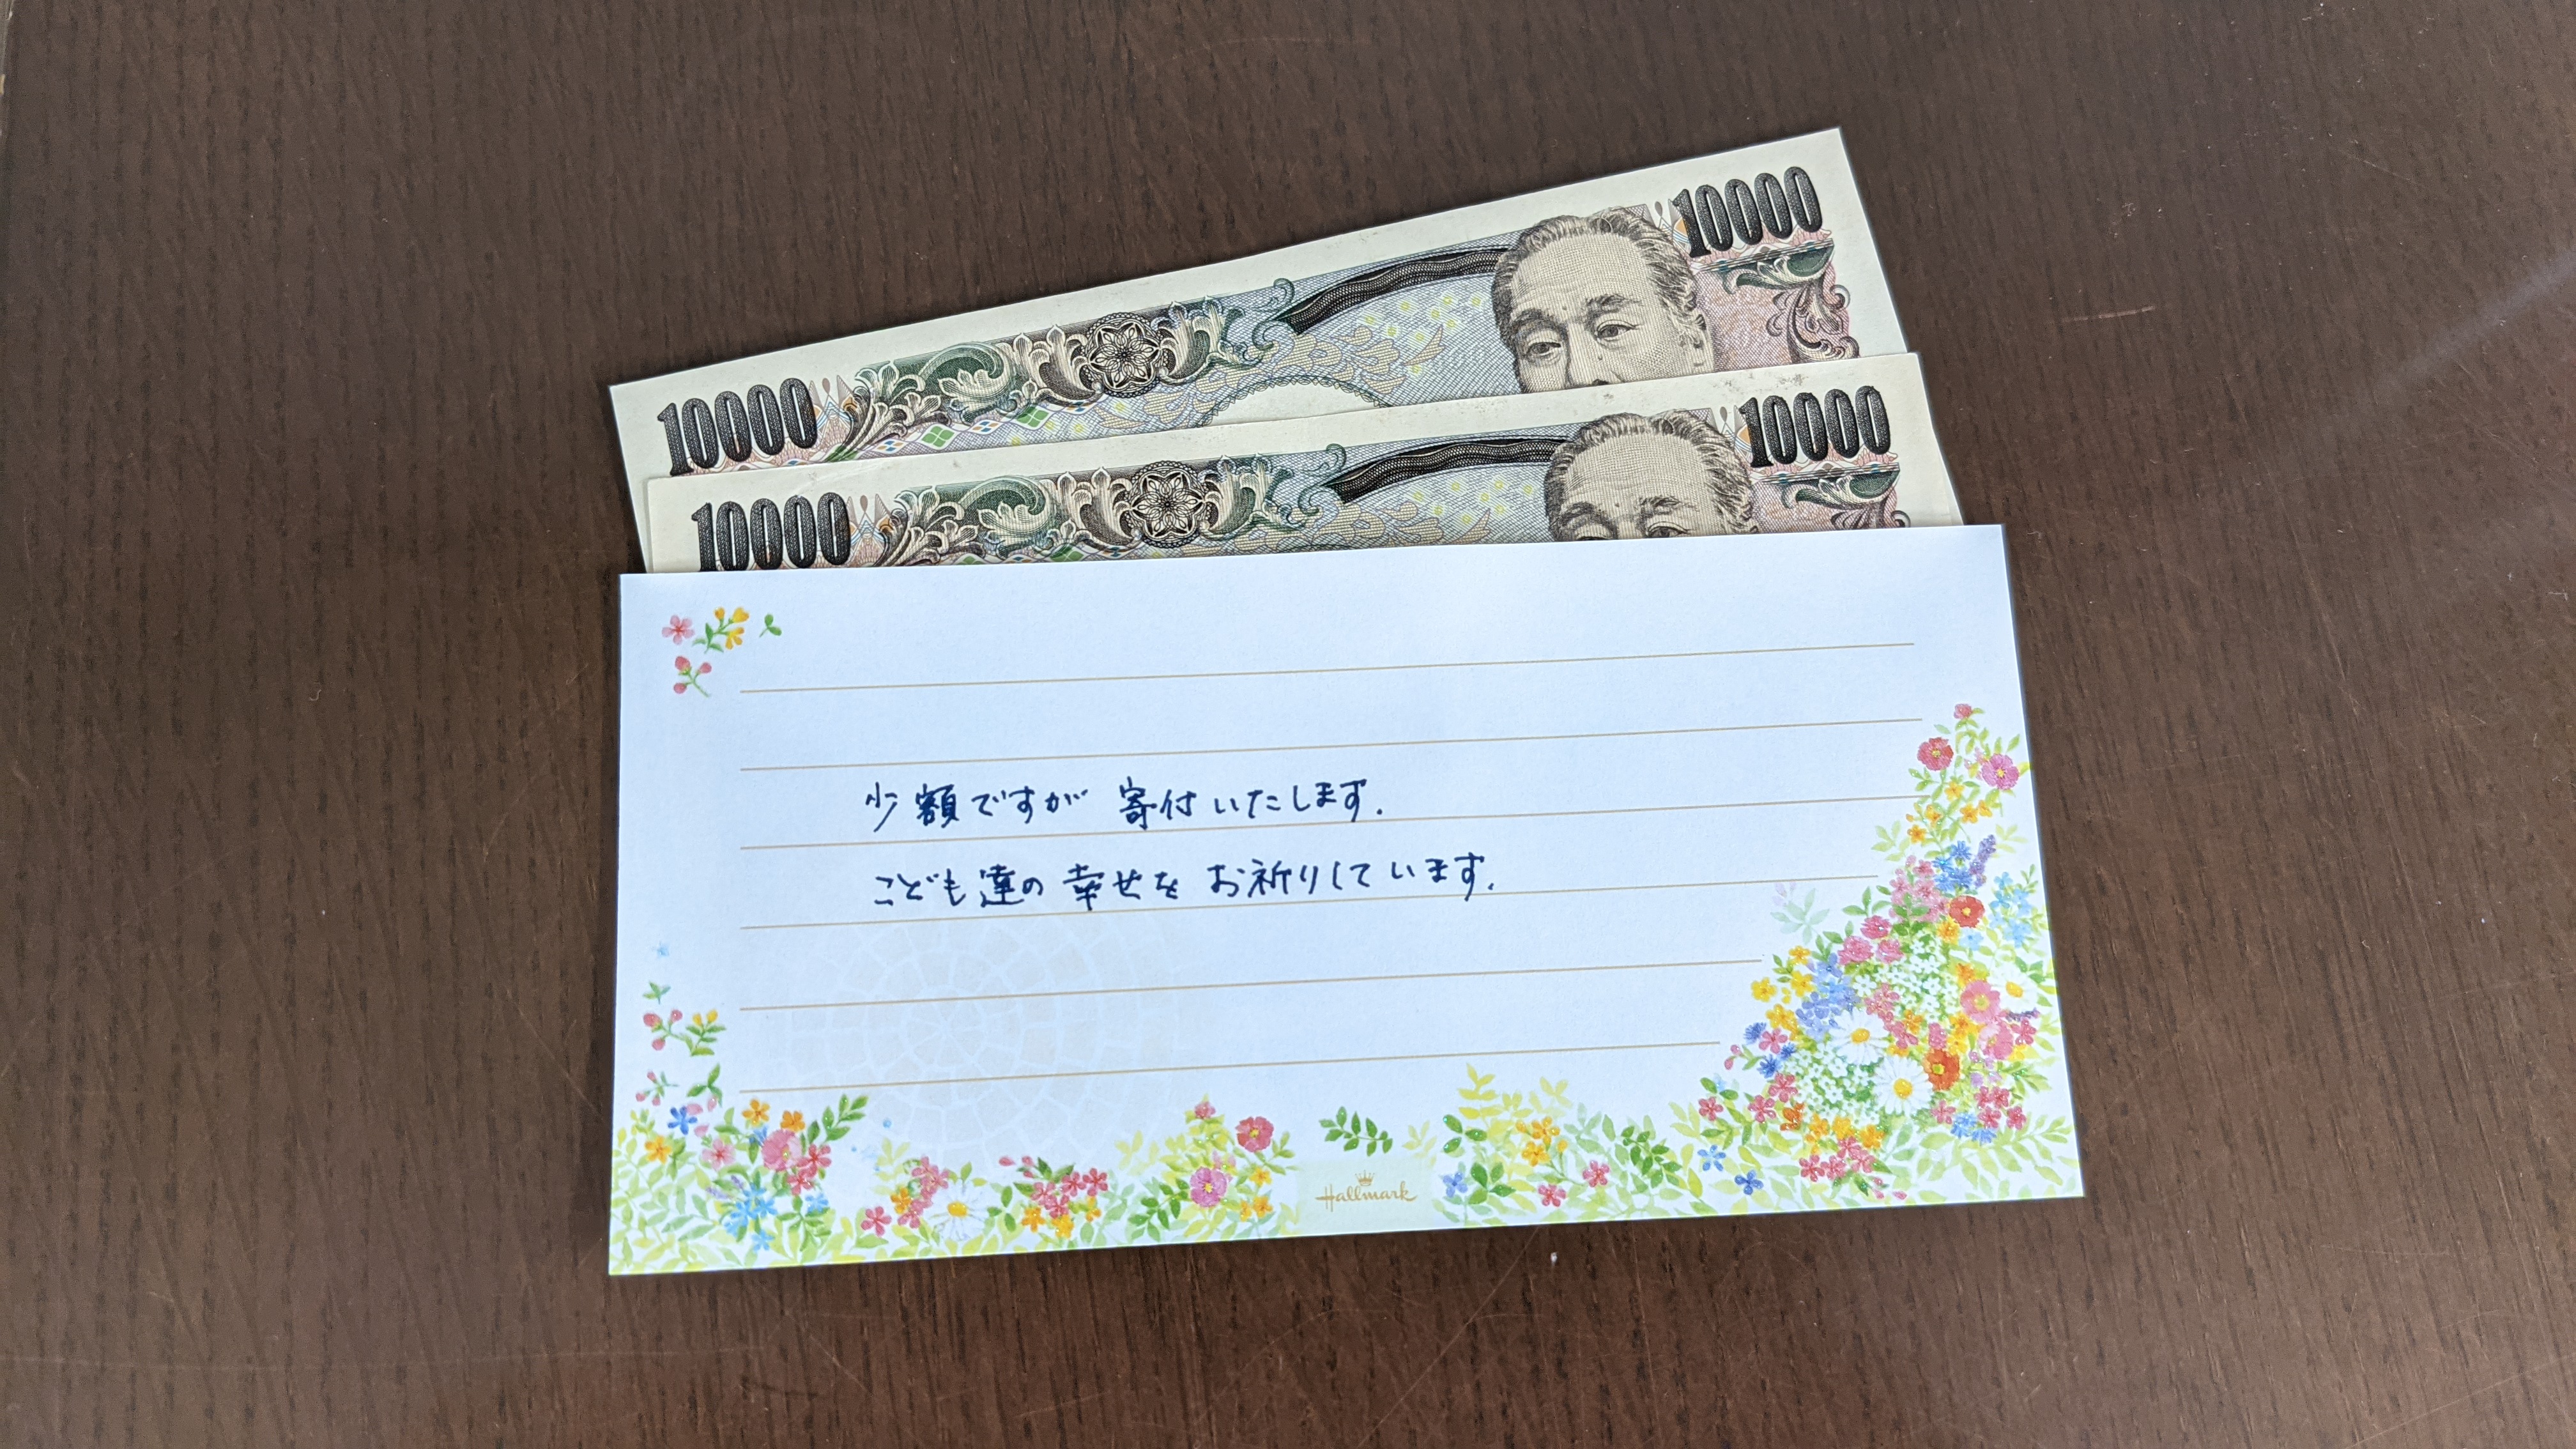 10000
10000
10000
10000
少額ですが 寄付いたします.
こども達の 幸せを お祈りしています.
Hallmark